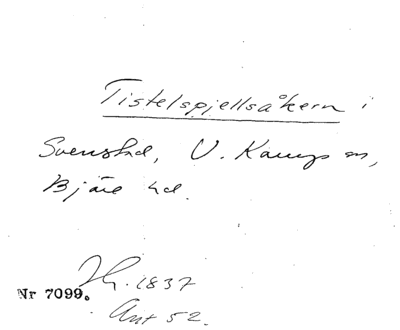 Tistelspjellsåkern i
Svenstad, V. Karups sn,
Bjäre hd.
Nr 7099. Jh. 1837
Ant 52.